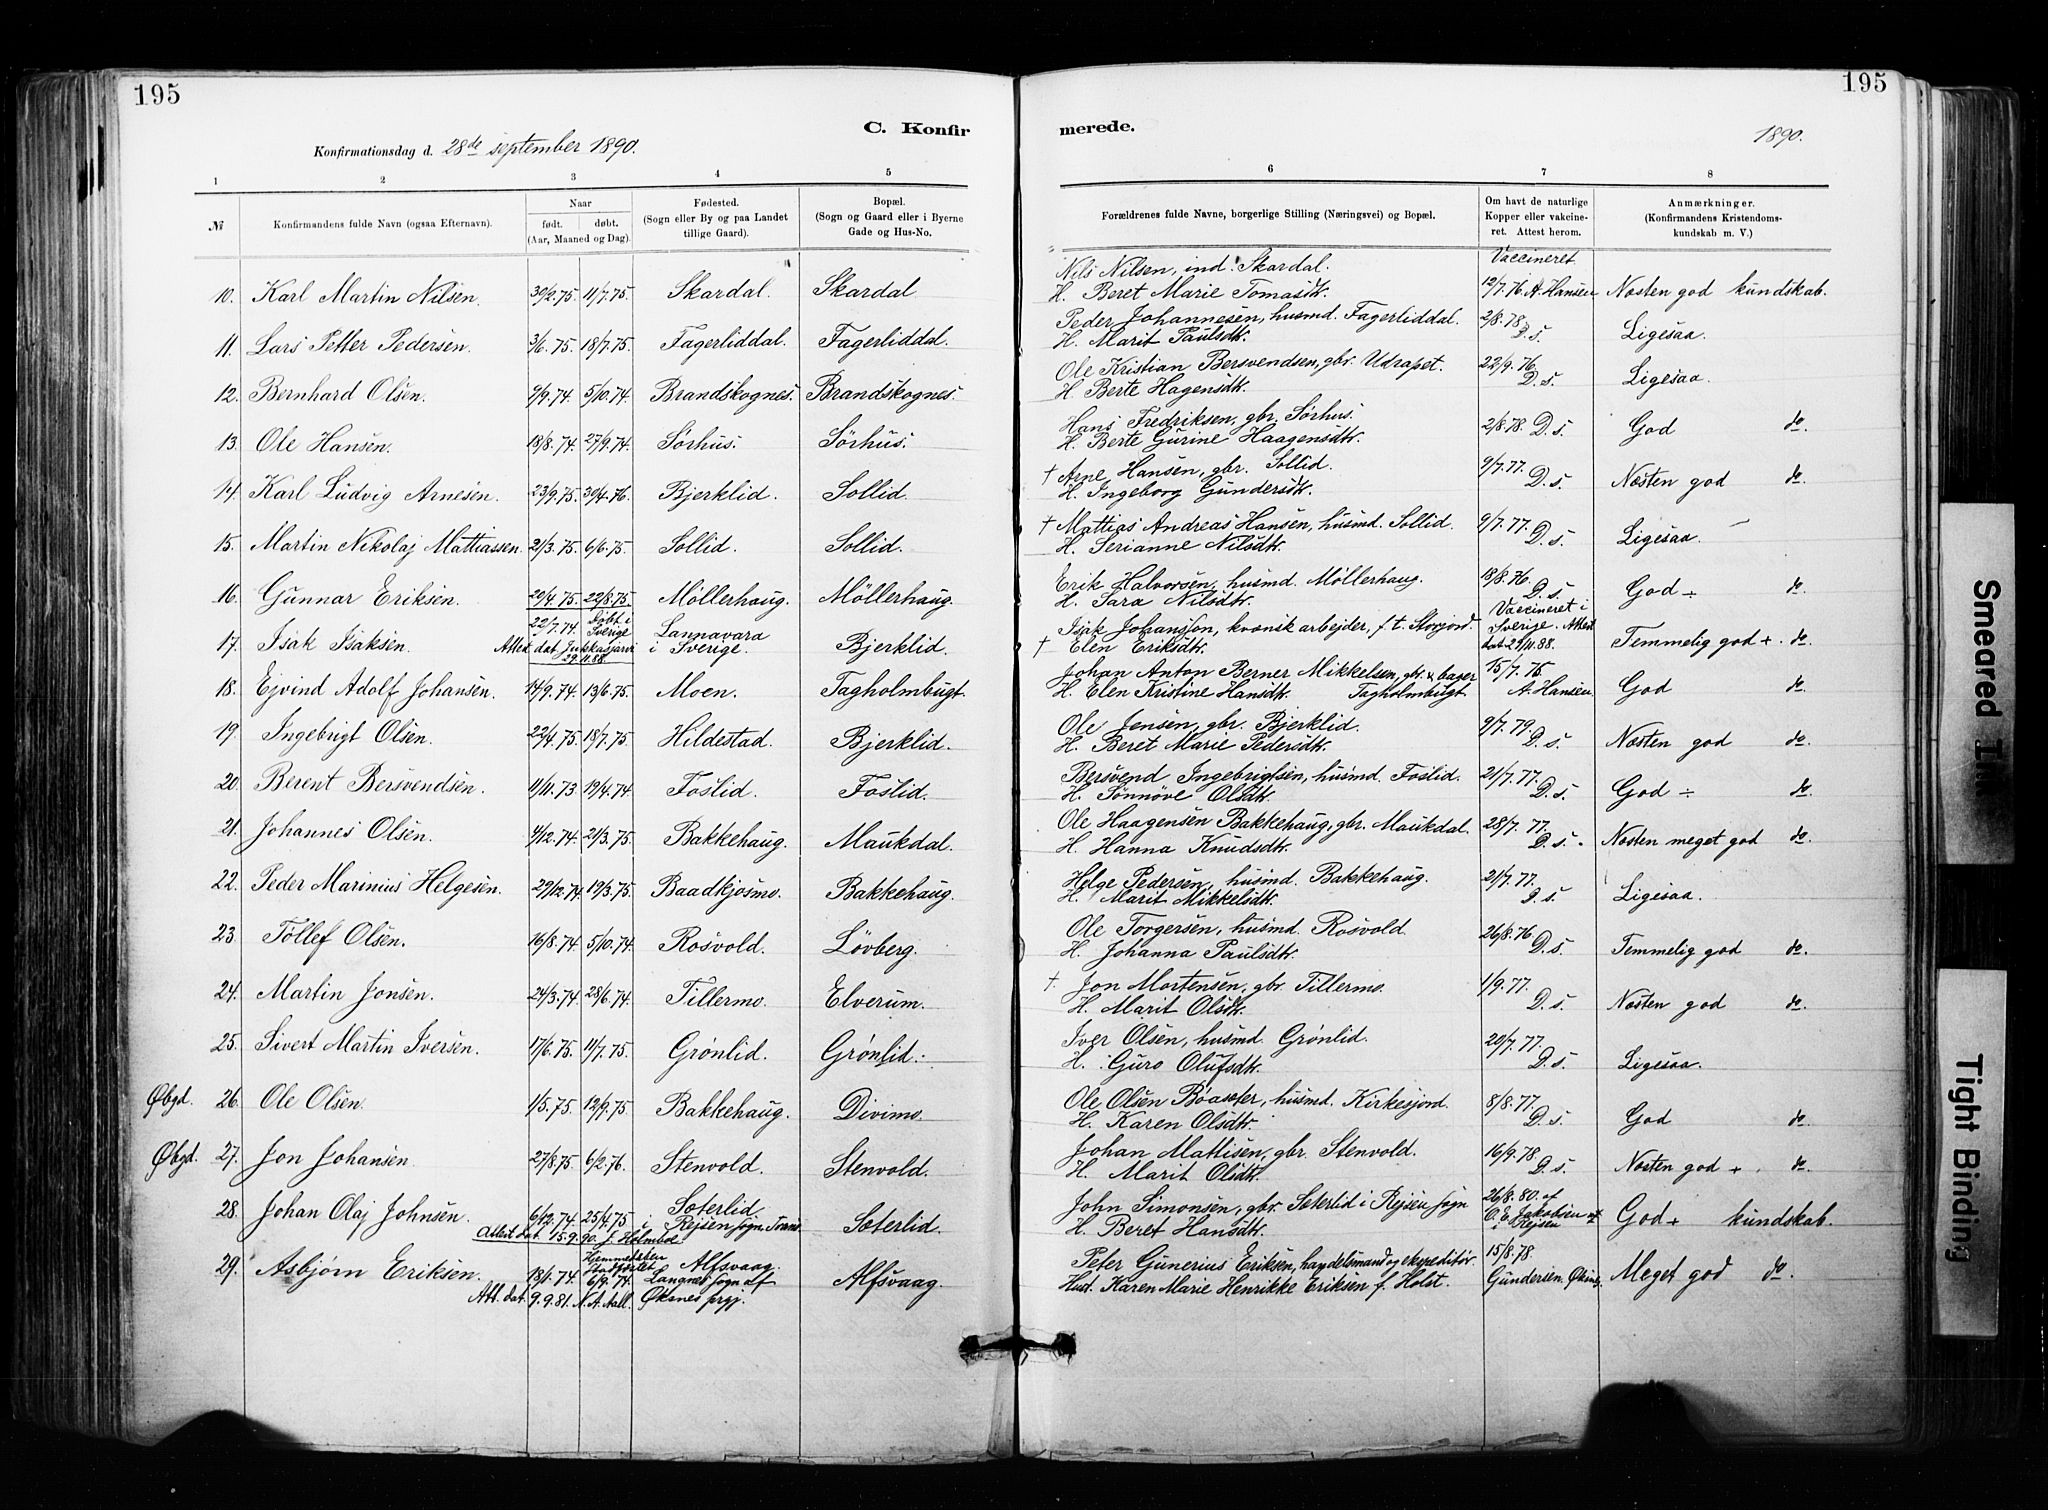 195
195
C. Konfirmerede.
Konfirmationsdag d. 28de september 1890.
1890.
1 2 3 4 5 6 7 8
№ Konfirmandens fulde Navn (ogsaa Efternavn). Naar født. døbt. (Aar, Maaned og Dag). Fødested. (Sogn eller By og paa Landet tillige Gaard). Bopæl. (Sogn og Gaard eller i Byerne Gade og Hus-No. Forældrenes fulde Navne, borgerlige Stilling (Næringsvei) og Bopæl. Om havt de naturlige Kopper eller vakcineret. Attest herom. Anmærkninger. (Konfirmandens Kristendomskundskab m. V.)
Nils Nilsen, ind. Skardal. Vaccineret
10. Karl Martin Nilsen. 30/2.75. 11/7.75. Skardal. Skardal H. Beret Marie Tomasdtr. 12/7.76. A. Hansen Næsten god kundskab.
Peder Johannesen, husmd. Fagerliddal. 2/8.78.
11. Lars Petter Pedersen. 3/6.75. 18/7.75. Fagerliddal. Fagerliddal. H. Marit Paulsdtr. D. s. Ligesaa.
Ole Kristian Bersvendsen, gbr. Udrapet. 22/9.76.
12. Bernhard Olsen. 9/9.74. 5/10.74. Brandskognes. Brandskognes. H. Berte Hagensdtr. D. s. Ligesaa.
Hans Fredriksen, gbr. Sørhus.
13. Ole Hansen. 18/8.74. 27/9.74. Sørhus. Sørhus. H. Berte Gurine Haagensdtr. 2/8.78. D. s. God do.
† Arne Hansen, gbr. Sollid. 9/7.77.
14. Karl Ludvig Arnesen. 23/9.75. 30/4.76. Bjerklid. Sollid. H. Ingeborg Gundersdtr. D. s. Næsten god do.
† Mattias Andreas Hansen, husmd. Sollid. 9/7.77.
15. Martin Nikolaj Mattiassen. 21/3.75. 6/6.75. Sollid. Sollid. H. Serianne Nilsdtr. D. s. Ligesaa.
Erik Halvorsen, husmd. Møllerhaug. 18/8.76.
16. Gunnar Eriksen. 20/4.75. 22/8.75. Møllerhaug. Møllerhaug. H. Sara Nilsdtr. D. s. God ÷ do.
22/7.74. Døbt i Sverige Lannavara Isak Johansson, kvænsk arbejder, f. t. Storjord. Vaccineret i Sverige. Attest
17. Isak Isaksen. Attest dat. Jukkasjarvi 29.11.88. i Sverige. Bjerklid. † Elen Eriksdtr. dat 29/11.88. Temmelig god + do.
Johan Anton Berner Mikkelsen, gbr. & bager 15/7.76.
18. Ejvind Adolf Johansen. 14/9.74. 13/6.75. Moen. Tagholmbugt. H. Elen Kristine Hansdtr. Tagholmbugt A. Hansen God do.
Ole Jensen, gbr. Bjerklid. 9/7.79.
19. Ingebrigt Olsen. 22/4.75. 18/7.75. Hildestad. Bjerklid. H. Beret Marie Pedersdtr. D. s. Næsten god do.
Bersvend Ingebrigtsen, husmd. Foslid. 21/7.77.
20. Berent Bersvendsen. 11/11.73. 19/4.74. Foslid. Foslid. H. Sønnøve Olsdtr. D. s. God ÷ do.
Ole Haagensen Bakkehaug, gbr. Maukdal. 28/7.77.
21. Johannes Olsen. 4/12.74. 21/3.75. Bakkehaug. Maukdal. H. Hanna Knudsdtr. D. s. Næsten meget god do.
Helge Pedersen, husmd. Bakkehaug. 21/7.77.
22. Peder Marinius Helgesen. 29/12.74. 19/3.75. Baadkjosmo. Bakkehaug. H. Marit Mikkelsdtr. D. s. Ligesaa.
Ole Torgersen, husmd. Rosvold 26/8.76.
23. Tøllef Olsen. 16/8.74. 5/10.74. Rosvold. Løvberg. H. Johanna Paulsdtr. D. s. Temmelig god do.
† Jon Mortensen, gbr. Tillermo. 1/9.77.
24. Martin Jonsen. 24/3.74. 28/6.74. Tillermo. Elverum. H. Marit Olsdtr. D. s. Næsten god do.
Iver Olsen, husmd. Grønlid. 29/7.77.
25. Sivert Martin Iversen. 17/6.75. 11/7.75. Grønlid. Grønlid. H. Guro Olufsdtr. D. s. Ligesaa.
Ole Olsen Bøasæter, husmd. Kirkesjord. 8/8.77.
Øbgd. 26. Ole Olsen. 1/5.75. 12/9.75. Bakkehaug. Divimo. H. Karen Olsdtr. D. s. God do.
Johan Mattisen, gbr. Stenvold. 16/9.78.
Øbgd. 27. Jon Johansen. 27/8.75. 6/2.76. Stenvold. Stenvold. H. Marit Olsdtr. D. s. Næsten god + do.
Sæterlid i John Simonsen, gbr. Sæterlid i Rejsen sogn 26/8.80. af
28. Johan Olaj Johnsen. 6/12.74. 25/4.75. Rejsen sogn. Sæterlid. H. Beret Hansdtr. O. E. Jakobsen Rejsen God + kundskab.
Attest dat. 15.9.90. J. Holmboe
Hjemmedøbt Stadfæstet Alfsvaag. Peter Gunerius Eriksen, handelsmand og ekspeditør. 15/8.78
29. Asbjørn Eriksen. 13/1.74. 6/9.74. Langnes sogn af Alfsvaag. Hust. Karen Marie Henrikke Eriksen f. Holst. Gundersen. Øksnes Meget god do.
Att. dat. 9.9.81. N. A. Aall. Øksnes prgj.
Smeared Ink
Tight Binding